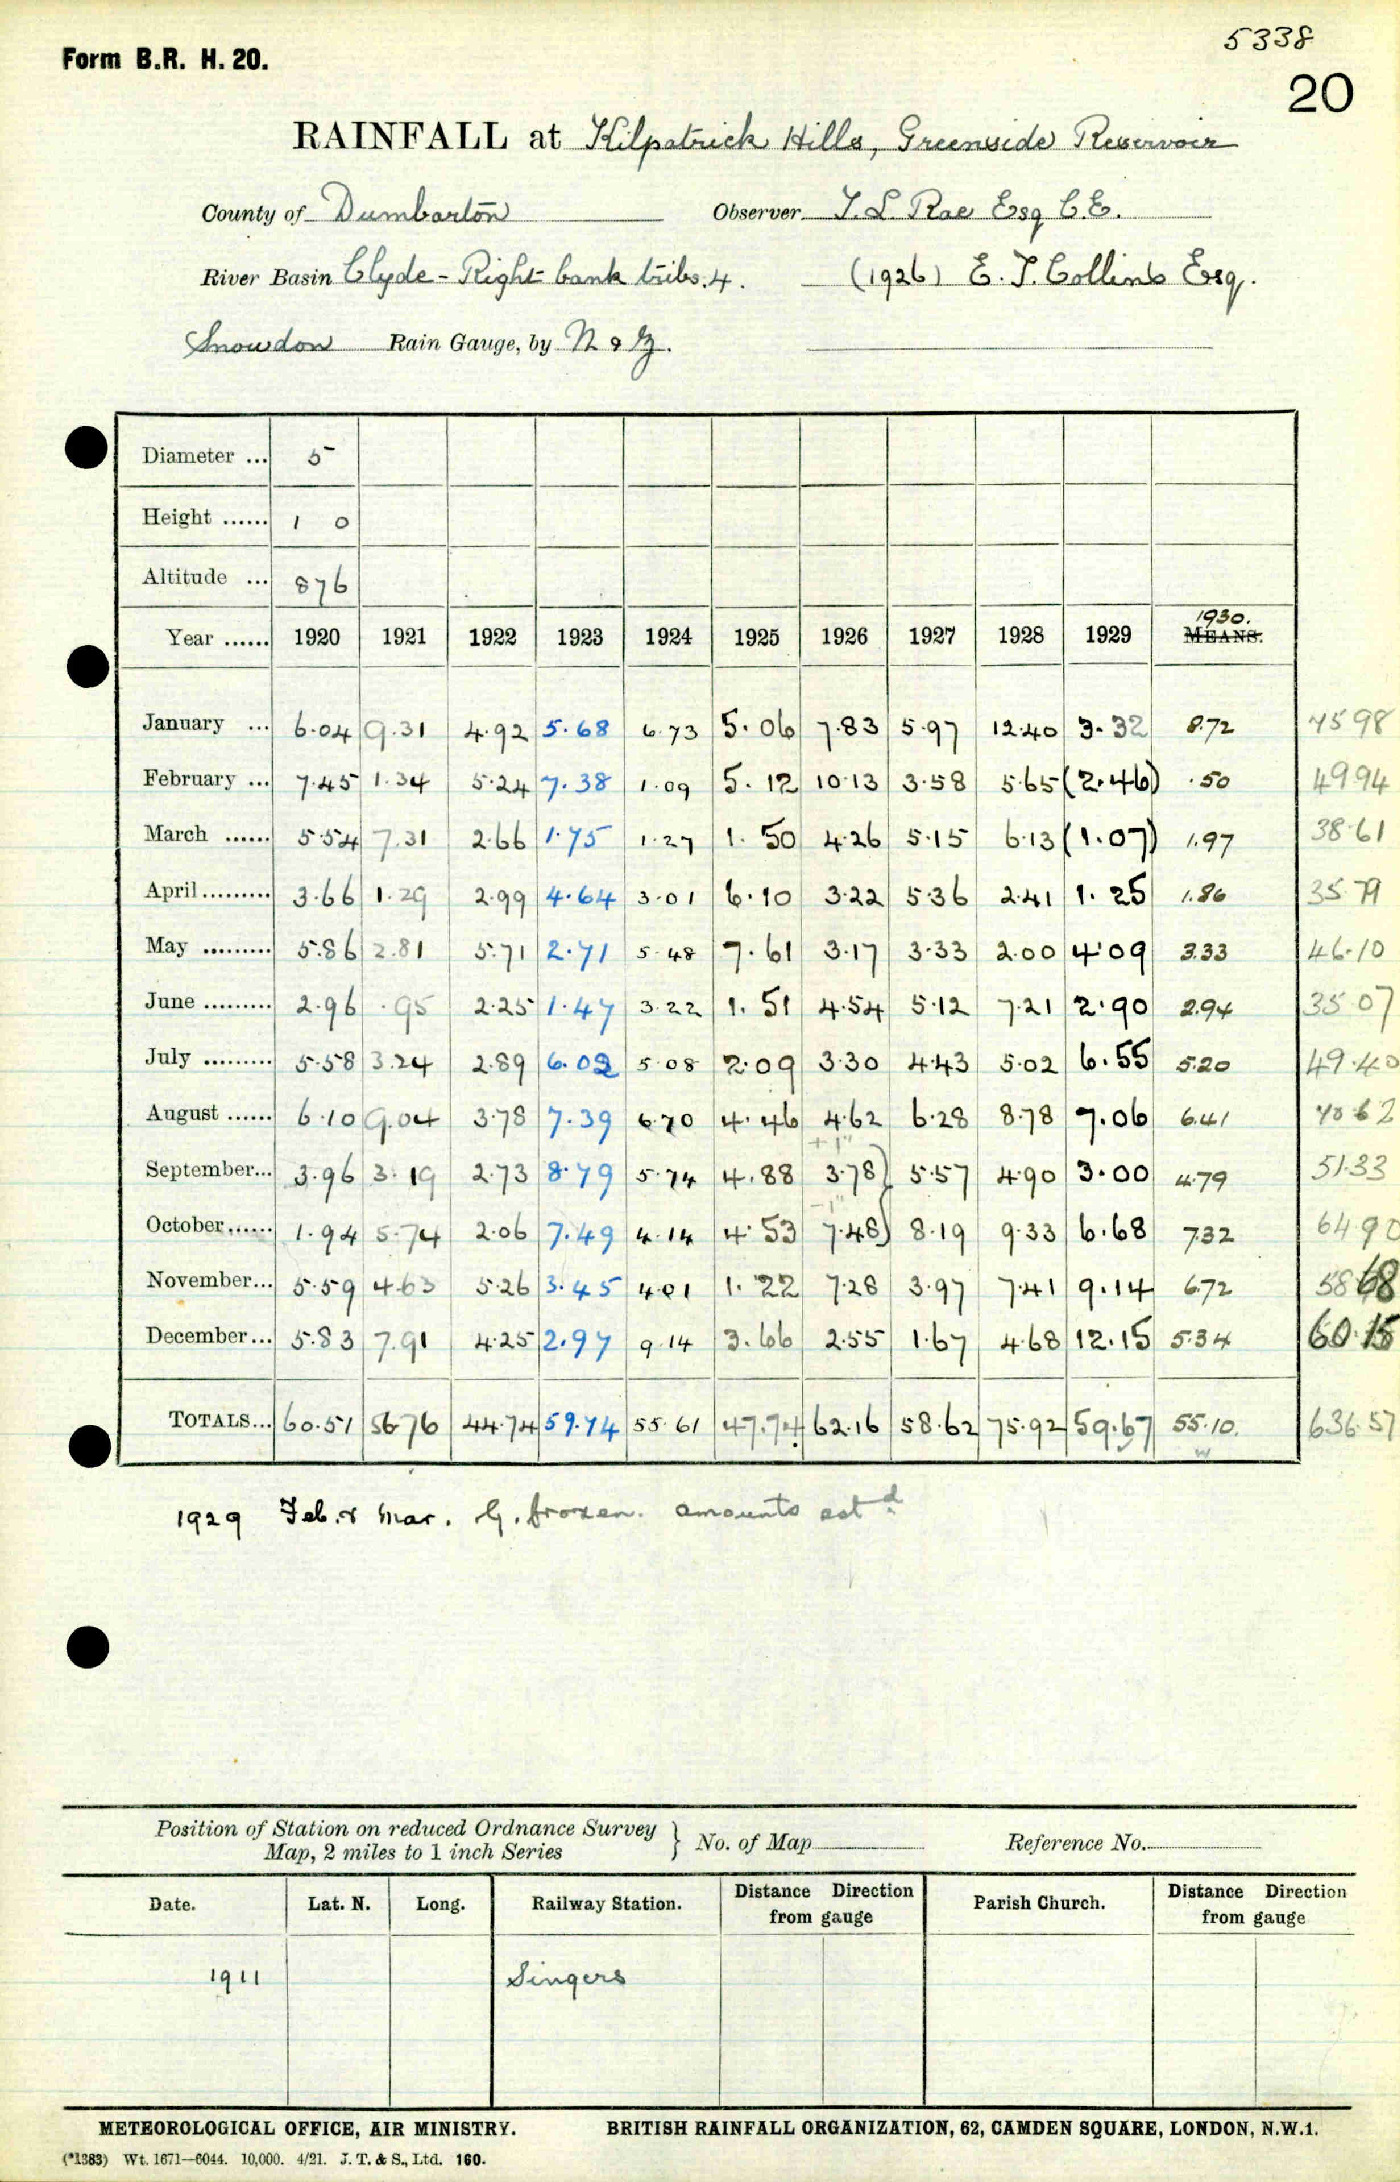 5338
Form B.R. H. 20.
20
RAINFALL at Kilpatrick Hills, Greenside Reservoir
County of Dumbarton Observer T. L. Rae Esq C.E.
River Basin Clyde - Right bank tribs. 4. (1926) E. T. Collins Esq.
Snowdon Rain Gauge, by N & Z.
Diameter ... 5
Height ...... 1 0
Altitude ... 876
1930.
Year ...... 1920 1921 1922 1923 1924 1925 1926 1927 1928 1929 MEANS.
January ... 6.04 9.31 4.92 5.68 6.73 5.06 7.83 5.97 12.40 3.32 8.72 75 98
February ... 7.45 1.34 5.24 7.38 1.09 5.12 10.13 3.58 5.65 (2.46) .50 49 94
March ...... 5.54 7.31 2.66 1.75 1.27 1.50 4.26 5.15 6.13 (1.07) 1.97 38.61
April ......... 3.66 1.29 2.99 4.64 3.01 6.10 3.22 5.36 2.41 1.25 1.86 35.79
May ......... 5.86 2.81 5.71 2.71 5.48 7.61 3.17 3.33 2.00 4.09 3.33 46.10
June ......... 2.96 .95 2.25 1.47 3.22 1.51 4.54 5.12 7.21 2.90 2.94 35.07
July ......... 5.58 3.24 2.89 6.02 5.08 2.09 3.30 4.43 5.02 6.55 5.20 49.40
August ...... 6.10 9.04 3.78 7.39 6.70 4.46 4.62 6.28 8.78 7.06 6.41 70 62
+1"
September... 3.96 3.19 2.73 8.79 5.74 4.88 3.78} 5.57 4.90 3.00 4.79 51.33
-1"
October...... 1.94 5.74 2.06 7.49 4.14 4.53 7.48} 8.19 9.33 6.68 7.32 64.90
November... 5.59 4.63 5.26 3.45 4.01 1.22 7.28 3.97 7.41 9.14 6.72 58 68
December... 5.83 7.91 4.25 2.97 9.14 3.66 2.55 1.67 4.68 12.15 5.34 60.15
TOTALS... 60.51 56.76 44.74 59.74 55.61 47.74 62.16 58.62 75.92 59.67 55.10. 636.57
1929 Feb. & Mar. G. frozen. amounts estd
Position of Station on reduced Ordnance Survey Map, 2 miles to 1 inch Series } No. of Map Reference No.
Date. Lat. N. Long. Railway Station. Distance Direction from gauge Parish Church. Distance Direction from gauge
1911 Singers
METEOROLOGICAL OFFICE, AIR MINISTRY. BRITISH RAINFALL ORGANIZATION, 62, CAMDEN SQUARE, LONDON, N.W.1.
(*1383) Wt. 1671—6044. 10,000. 4/21. J. T. & S., Ltd. 160.